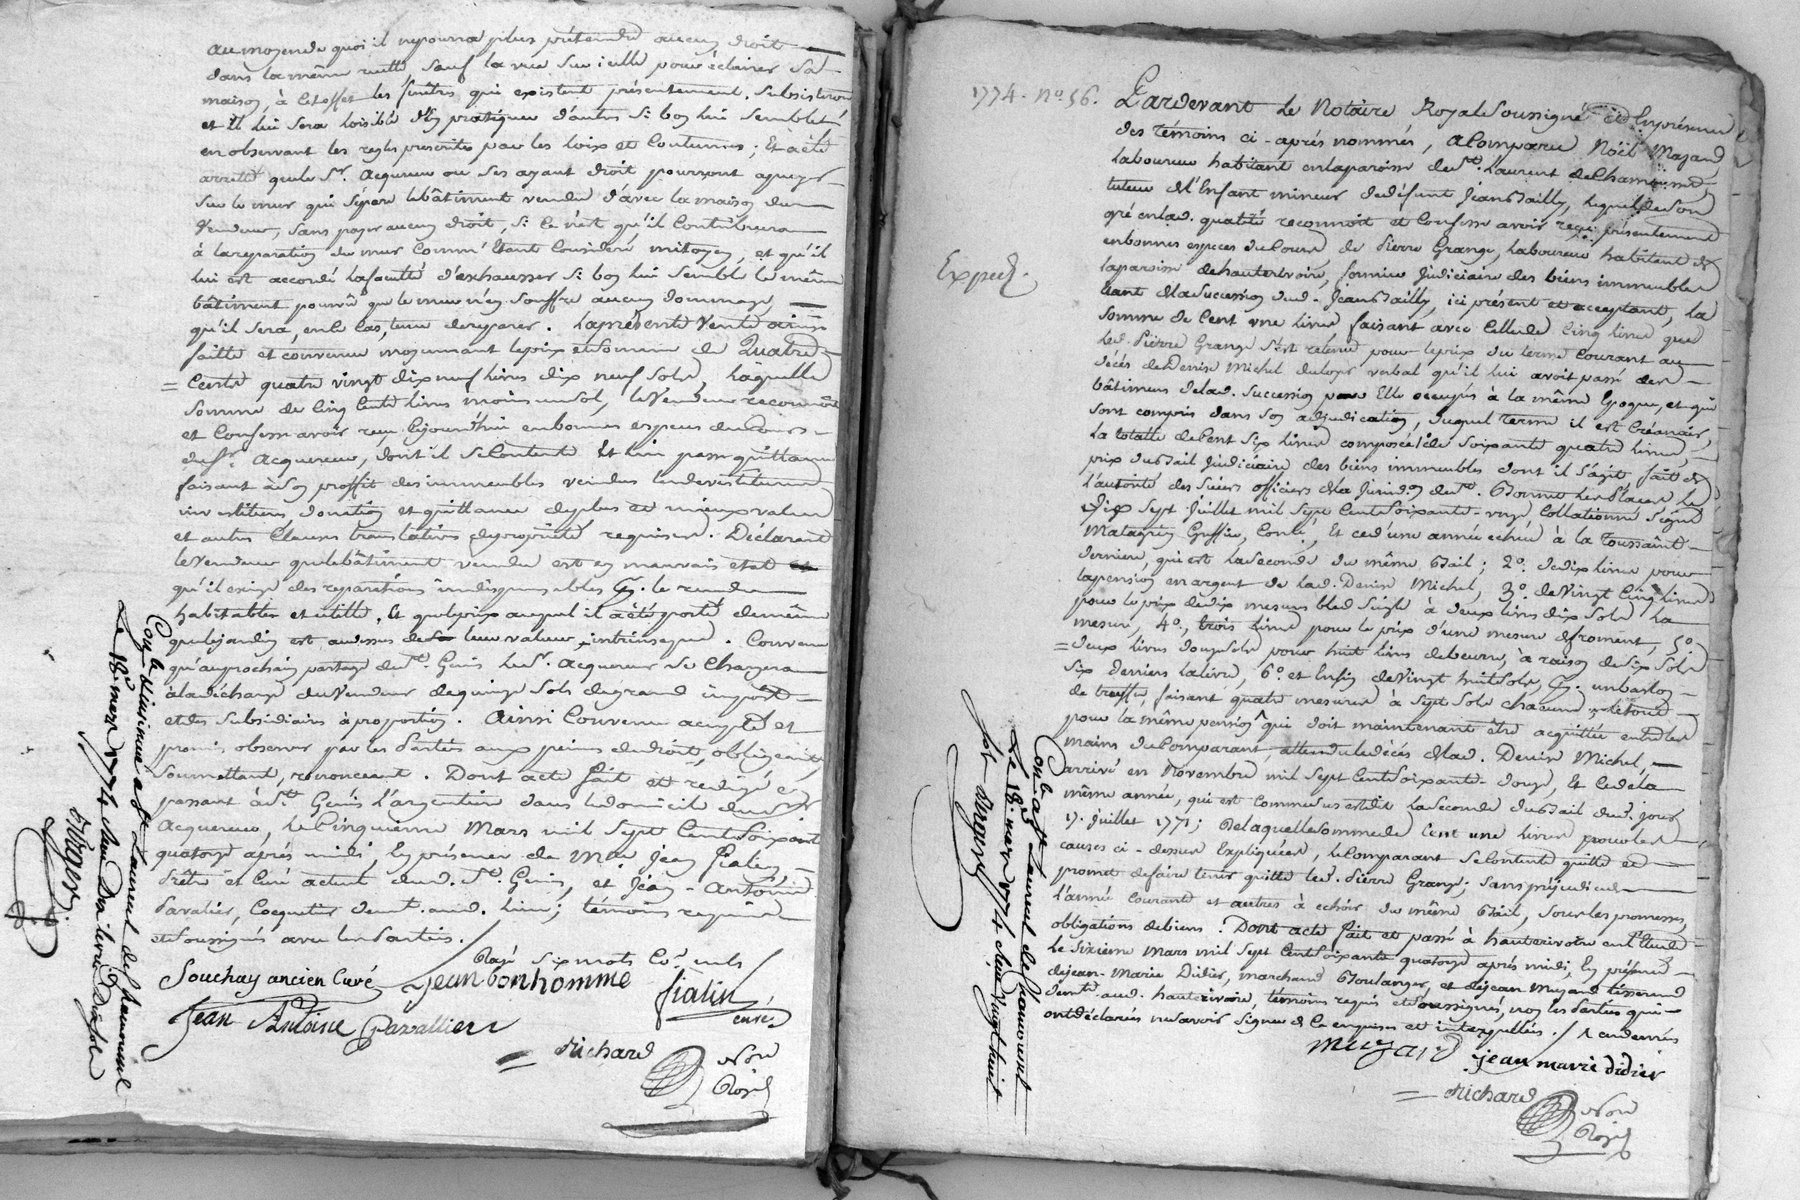 au moyen de quoi il ne pourra plus prétendre aucun droit
dans la même ruelle sauf la vue sur icelle pour éclairer sa
maison, à cet effet les fenêtres qui existent présentement, subsisteront
et il lui sera loisible d'en pratiquer d'autres si bon lui semble
en observant les regles prescrites par les loix et coutumes; Et a été
arretté que le Sr. Acquereur ou ses ayant droit pourront apuyer
sur le mur qui sépare le bâtiment vendu d'avec la maison du
Vendeur, sans payer aucun droit, si ce n'est qu'il contribuera
à la reparation du mur comme étant consideré mitoyen, et qu'il
lui est accordé la faculté d'exhausser si bon lui semble le même
bâtiment pourvû que le mur n'en souffre aucun dommage,
qu'il sera, en ce cas, tenu de reparer. La présente vente ainsi
faitte et convenue moyennant le prix et somme de Quatre
Cents quatre vingt dix neuf livres dix neuf sols, laquelle
somme de cinq cents livres moins un sol, le Vendeur reconnoit
et confesse avoir reçu cejourd'hui en bonnes especes de cours
dud. Sr. Acquereur, dont il se contente et l'en passe quittance
faisant à son proffit des immeubles vendus les devestitures
investitures, donation et quittance de plus et mieux value
et autres clauses translatives de propriété requises. Déclarant
le Vendeur que le bâtiment vendu est en mauvais etat
qu'il exige des reparations indispensables pr. le rendre
habitables et utille, et que le prix auquel il a été porté de même
que le jardin est au dessus de leur valeur intrinseque. Convenu
qu'au prochain partage de St. Genis led. Sr. Acquereur se chargera
à la décharge du Vendeur de quinze sols de grand impôt
et des subsidiaires à proportion. Ainsi convenu accepté et
promis observer par les Parties aux peines de droit, obligeant,
soumettant, renonceant. Dont acte fait et redigé en
passant à St. Genis l'argentiere dans le domicile dud. Sr.
Acquereur, le Cinquieme Mars mil sept cent soixante
quatorze après midi, En présence de Mre Jean Fialin,
Prêtre et Curé actuel dud. St. Genis, et Jean-Antoine
Pavalier, Coquetier demt. aud. lieu; témoins requis
et soussignés avec les Parties.
Rayé six mots co: nuls
Souchay ancien Curé Jean bonhomme fialin
curé
Jean Antoine Pavallier
Richard Nore
Royal
Le 18e mars 1774
1774. No. 56.
Expedié.
Pardevant le Notaire Royal soussigné et En présence
des Témoins ci-après nommés, a Comparu Noël Mazand
laboureur habitant en la paroisse de St. Laurent de Chamousset
tuteur de l'Enfant mineur de défunt Jean Bailly, lequel de son
gré en lad. qualité reconnoit et confesse avoir reçu présentement
en bonnes especes de cours, de Pierre Grange, laboureur habitant de
la paroisse de hauterivoire, fermier judiciaire des biens immeubles
étant de la succession dud. Jean Bailly, ici présent et acceptant, la
somme de Cent une livres faisant avec celle de cinq livres que
led. Pierre Grange s'est retenue pour le prix du terme courant au
décès de Denise Michel du loyer verbal qu'il lui avoit passé des
bâtimens de lad. succession par Elle occupés à la même Epoque, et qui
sont compris dans son adjudication, duquel terme il est créancier,
la totalle de Cent six livres composée: 1o. de soixante quatre livres,
prix du Bail judiciaire des biens immeubles dont il s'agit, fait de
l'autorité des sieurs officiers de la Jurisdon. de St. Bonnet les Places le
Dix sept juillet mil sept cent soixante-onze Collationné signé
Matagrin Greffier, Conlé, Et ce d'une année échue à la Toussaint
derniere, qui est la seconde du même Bail; 2o. de dix livres pour
la pension en argent de lad. Denise Michel, 3o. de Vingt cinq livres
pour le prix de dix mesures bled seigle à deux livres dix sols la
mesure, 4o. trois livres pour le prix d'une mesure de froment, 5o.
deux livres douze sols pour huit livres de beurre, à raison de six sols
six deniers la livre, 6o. et Enfin de Vingt huit sols, pr. un
de truffes, faisant quatre mesures à sept sols chacune, le tout
pour la même pension qui doit maintenant être acquittée entre les
mains du Comparant, attendu le décès de lad. Denise Michel,
arrivé en Novembre mil sept cent soixante-douze, Et ce de la
même année, qui est comme sus est dit la seconde du Bail dud. jour
17. juillet 1771; De laquelle somme de Cent une livres pour les
causes ci-dessus Expliquées, le Comparant se contente quitte et
promet de faire tenir quitte led. Pierre Grange; sans préjudice de
l'année courante et autres à echoir du même Bail, sous les promesses,
obligations de biens. Dont acte fait et passé à hauterivoire en l'Etude
le Sixieme Mars mil sept cent soixante quatorze après midi, En présence
de jean-Marie Didier, marchand Boulanger, et de jean Mazand tisserand
demts. aud. hauterivoire, témoins requis et soussignés, non les Parties qui
ont déclarés ne savoir signer de ce enquises et interpellées.
mazand jean marie didier
Richard Nore
Royal
Le 18e mars 1774